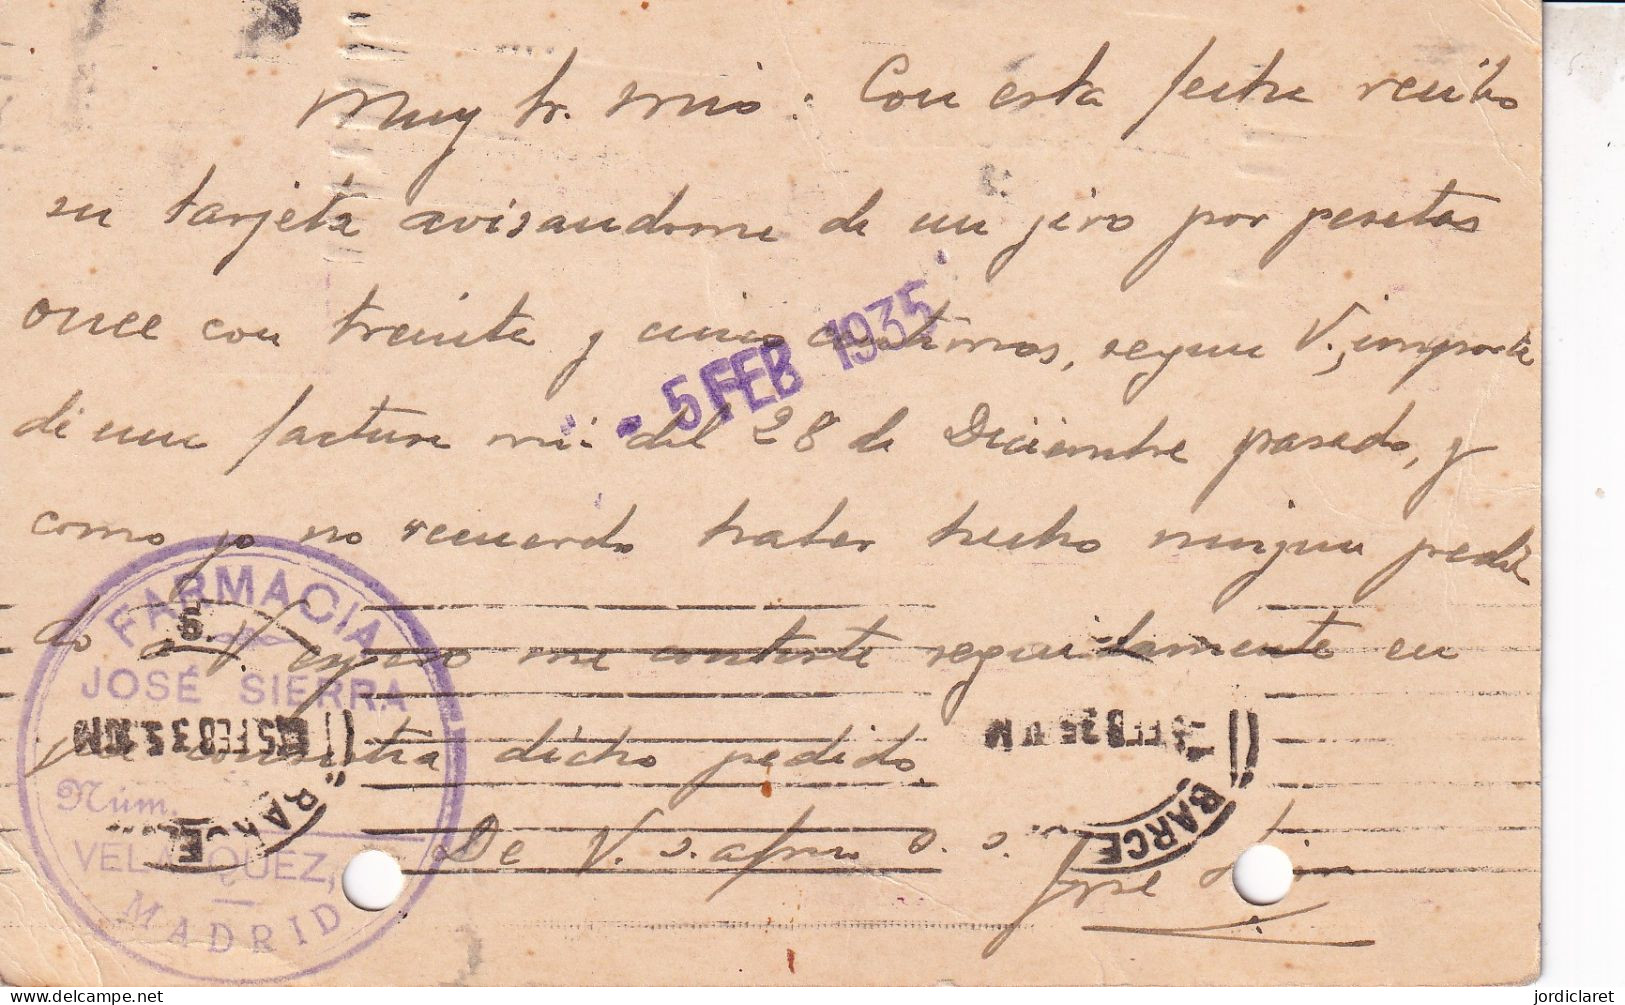 Muy Sr. mio: Con esta fecha recibo
su tarjeta avisandome de un giro por pesetas
once con treinta y cinco centimos, segun V., importe
de una factura mia del 28 de Diciembre pasado, y
como yo no recuerdo haber hecho ningun pedi
do a V. espero me conteste seguidamente en
que consista dicho pedido.
De V. s. afmo s. s.
José
- 5 FEB 1935
FARMACIA
JOSÉ SIERRA
Núm.
VELAZQUEZ,
MADRID
5 FEB 35
BARCE
FEB 35
BARCE
delcampe.net
jordiclaret